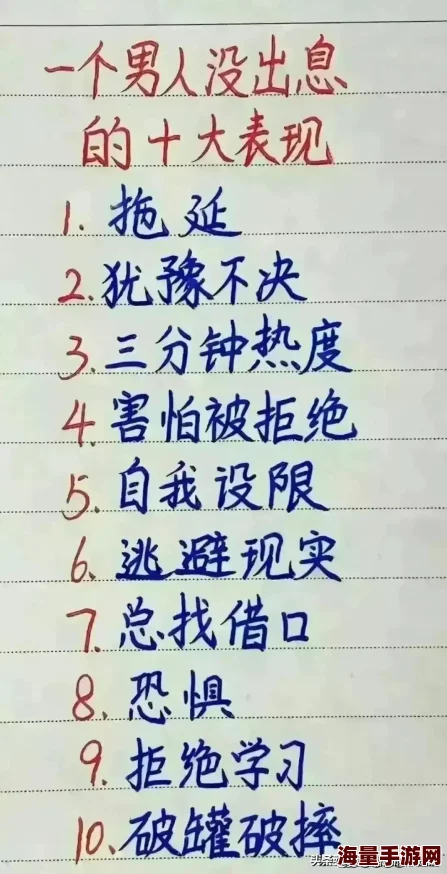 一个男人没出息
的十大表现
1. 拖延
2. 犹豫不决
3. 三分钟热度
4. 害怕被拒绝
5. 自我设限
6. 逃避现实
7. 总找借口
8. 恐惧
9. 拒绝学习
10. 破罐破摔
海量手游网